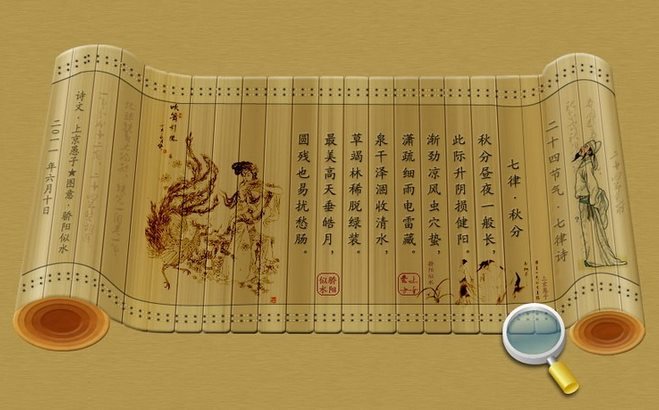 二十四节气·七律诗
七律·秋分
秋分昼夜一般长，
此际升阴损健阳。
渐劲凉风虫穴蛰，
潇疏细雨电雷藏。
泉干泽涸收清水，
草竭林稀脱绿装。
最美高天垂皓月，
圆残也易扰愁肠。
骄阳似水
骄阳似水
吹箫引凤
诗文·上京愚子★图意·骄阳似水
二〇一一年六月十日